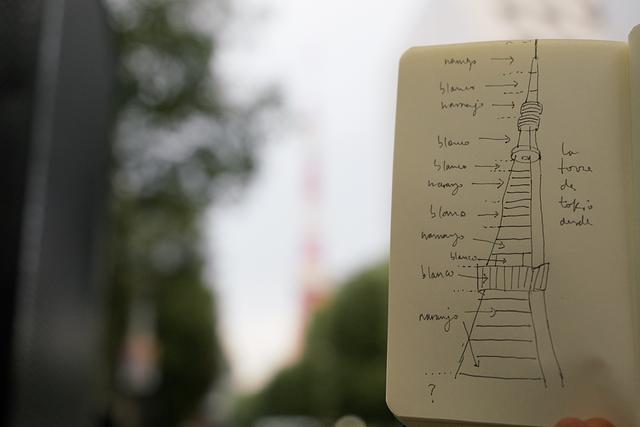 naranjo
blanco
naranjo
blanco
blanco
naranjo
blanco
naranjo
blanco
blanco
naranjo
?
La
torre
de
tokio
desde